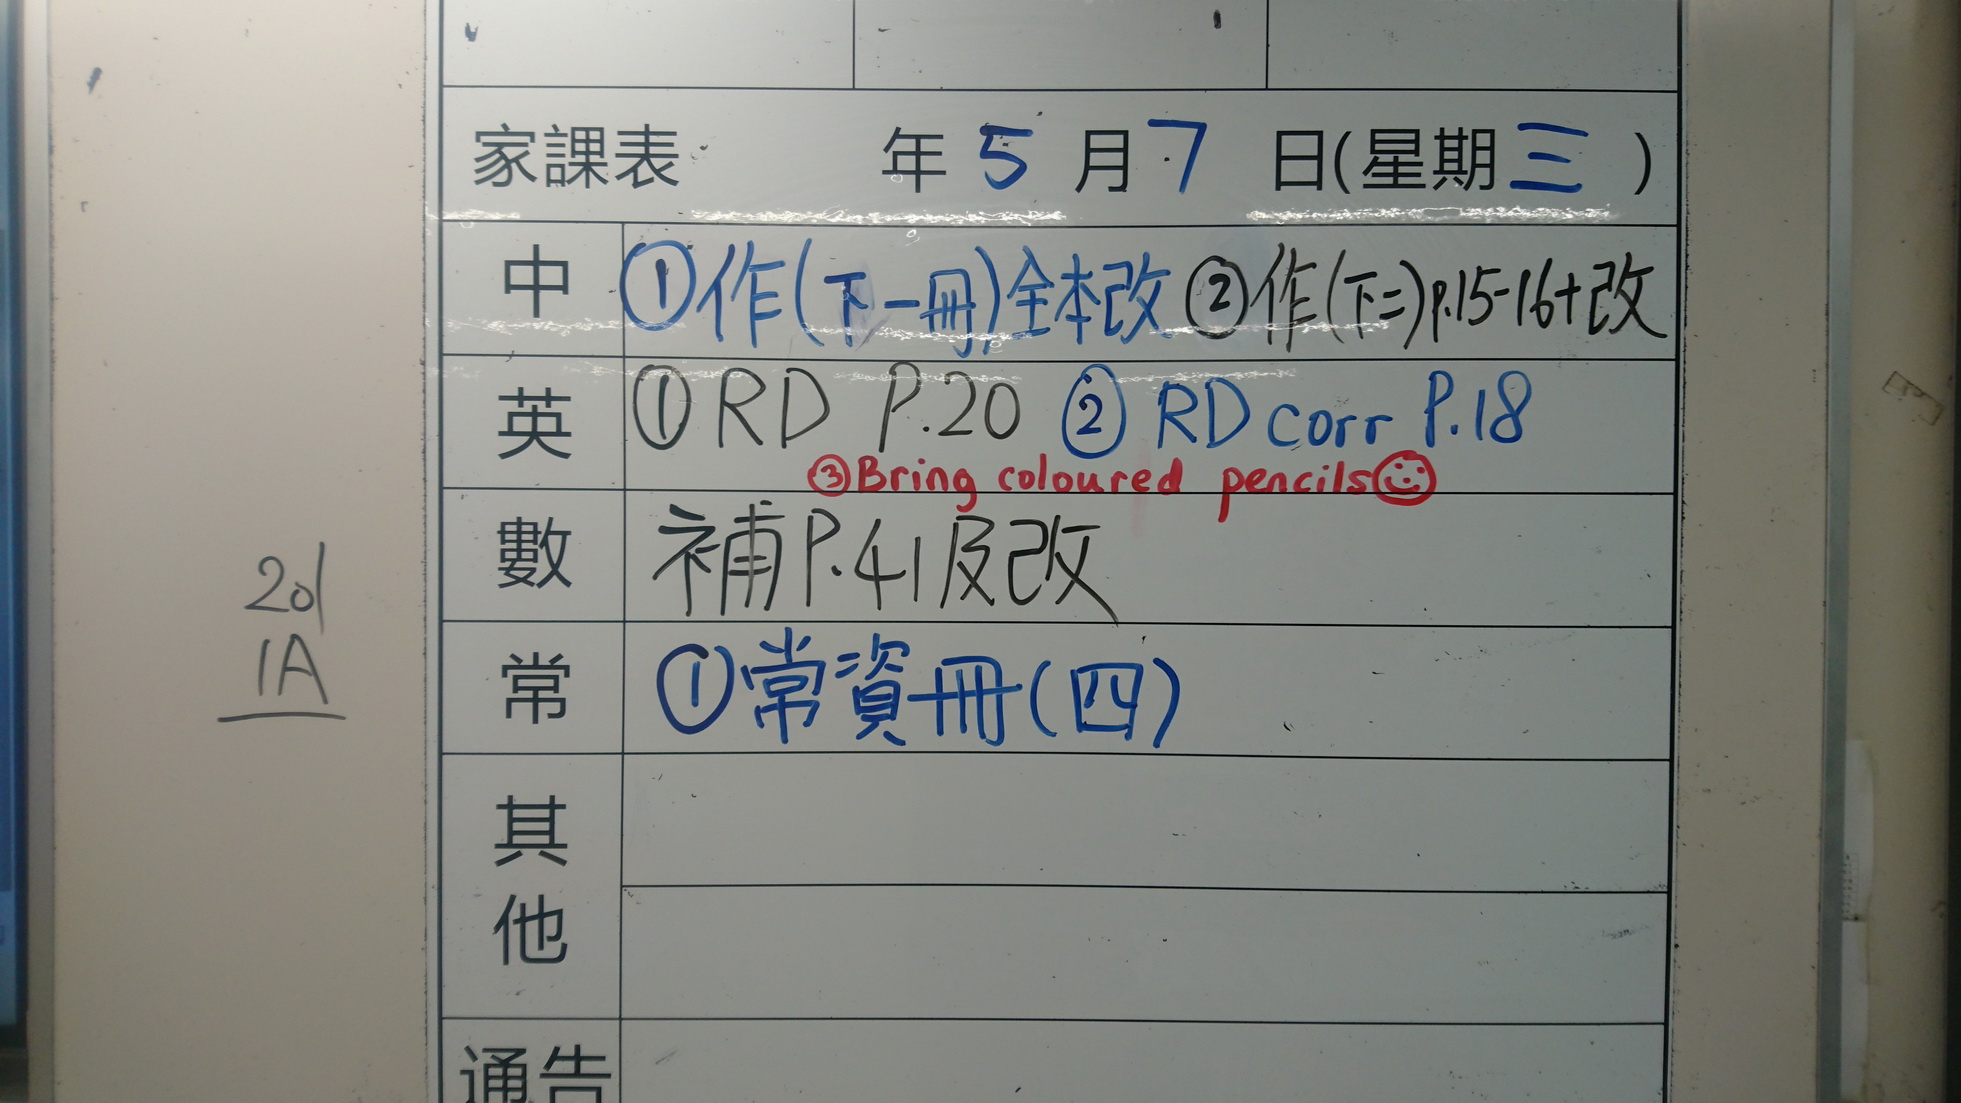 家課表 年5月7日(星期三)
中 ①作(下一冊)全本改 ②作(下二)p.15-16+改
英 ①RD P.20 ②RD corr P.18
③Bring coloured pencils
數 補P.41及改
常 ①常資冊(四)
其他
通告
201
1A